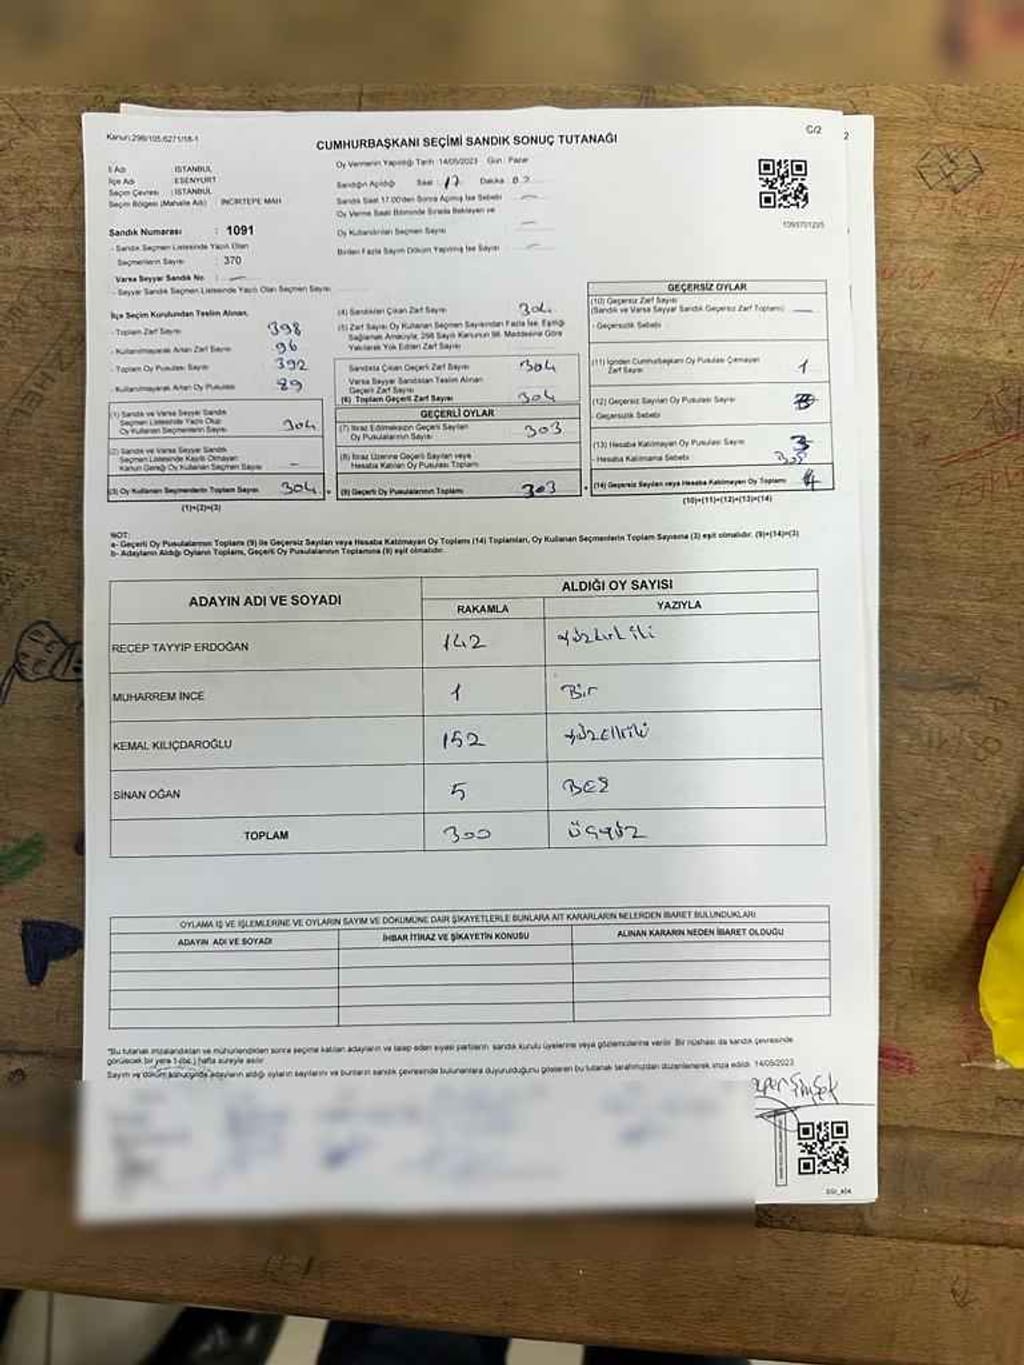 Kanun:298/105-6271/18-1
C/2
2
CUMHURBAŞKANI SEÇİMİ SANDIK SONUÇ TUTANAĞI
İl Adı : İSTANBUL
İlçe Adı : ESENYURT
Seçim Çevresi : İSTANBUL
Seçim Bölgesi (Mahalle Adı) : İNCİRTEPE MAH
Oy Vermenin Yapıldığı Tarih :14/05/2023 Gün : Pazar
Sandığın Açıldığı Saat : 17 Dakika
Sandık Saat 17.00'den Sonra Açılmış İse Sebebi
Oy Verme Saati Bitiminde Sırada Bekleyen ve
Oy Kullandırılan Seçmen Sayısı
Birden Fazla Sayım Döküm Yapılmış İse Sayısı
Sandık Numarası : 1091
- Sandık Seçmen Listesinde Yazılı Olan
Seçmenlerin Sayısı : 370
Varsa Seyyar Sandık No :
- Seyyar Sandık Seçmen Listesinde Yazılı Olan Seçmen Sayısı :
İlçe Seçim Kurulundan Teslim Alınan,
- Toplam Zarf Sayısı 398
- Kullanılmayarak Artan Zarf Sayısı 96
- Toplam Oy Pusulası 392
- Kullanılmayarak Artan Oy Pusulası 89
(1) Sandık ve Varsa Seyyar Sandık
Seçmen Listesinde Yazılı Olup
Oy Kullanan Seçmenlerin Sayısı 304
(2) Sandık ve Varsa Seyyar Sandık
Seçmen Listesinde Kayıtlı Olmayan
Kanun Gereği Oy Kullanan Seçmen Sayısı –
(3) Oy Kullanan Seçmenlerin Toplam Sayısı 304
(1)+(2)=(3)
(4) Sandıktan Çıkan Zarf Sayısı 304
(5) Zarf Sayısı Oy Kullanan Seçmen Sayısından Fazla İse, Eşitliği
Sağlamak Amacıyla, 298 Sayılı Kanunun 98. Maddesine Göre
Yakılarak Yok Edilen Zarf Sayısı
Sandıkta Çıkan Geçerli Zarf Sayısı 304
Varsa Seyyar Sandıktan Teslim Alınan
Geçerli Zarf Sayısı
(6) Toplam Geçerli Zarf Sayısı 304
GEÇERLİ OYLAR
(7) İtiraz Edilmeksizin Geçerli Sayılan
Oy Pusulasının Sayısı 303
(8) İtiraz Üzerine Geçerli Sayılan veya
Hesaba Katılan Oy Pusulası Toplamı
(9) Geçerli Oy Pusulalarının Toplamı 303
GEÇERSİZ OYLAR
(10) Geçersiz Zarf Sayısı
(Sandık ve Varsa Seyyar Sandık Geçersiz Zarf Toplamı)
- Geçersizlik Sebebi
(11) İçinden Cumhurbaşkanı Oy Pusulası Çıkmayan
Zarf Sayısı 1
(12) Geçersiz Sayılan Oy Pusulası Sayısı
- Geçersizlik Sebebi
(13) Hesaba Katılmayan Oy Pusulası Sayısı 3
- Hesaba Katılmama Sebebi
(14) Geçersiz Sayılan veya Hesaba Katılmayan Oy Toplamı 4
(10)+(11)+(12)+(13)=(14)
NOT:
a- Geçerli Oy Pusulalarının Toplamı (9) ile Geçersiz Sayılan veya Hesaba Katılmayan Oy Toplamı (14) Toplamları, Oy Kullanan Seçmenlerin Toplam Sayısına (3) eşit olmalıdır. (9)+(14)=(3)
b- Adayların Aldığı Oyların Toplamı, Geçerli Oy Pusulalarının Toplamına (9) eşit olmalıdır.
ADAYIN ADI VE SOYADI
ALDIĞI OY SAYISI
RAKAMLA YAZIYLA
RECEP TAYYİP ERDOĞAN 142 yüzkırkiki
MUHARREM İNCE 1 Bir
KEMAL KILIÇDAROĞLU 152 yüzelliiki
SİNAN OĞAN 5 BEŞ
TOPLAM 300 üçyüz
OYLAMA İŞ VE İŞLEMLERİNE VE OYLARIN SAYIM VE DÖKÜMÜNE DAİR ŞİKAYETLERLE BUNLARA AİT KARARLARIN NELERDEN İBARET BULUNDUKLARI
ADAYIN ADI VE SOYADI İHBAR İTİRAZ VE ŞİKAYETİN KONUSU ALINAN KARARIN NEDEN İBARET OLDUĞU
"Bu tutanak imzalandıktan ve mühürlendikten sonra seçime katılan adayların ve talep eden siyasi partilerin sandık kurulu üyelerine veya gözlemcilerine verilir. Bir nüshası da sandık çevresinde
görülecek bir yere 1 (bir) hafta süreyle asılır
Sayım ve döküm sonucunda adayların aldığı oyların sayılarını ve bunların sandık çevresinde bulunanlara duyurulduğunu gösteren bu tutanak tarafımızdan düzenlenerek imza edildi. 14/05/2023